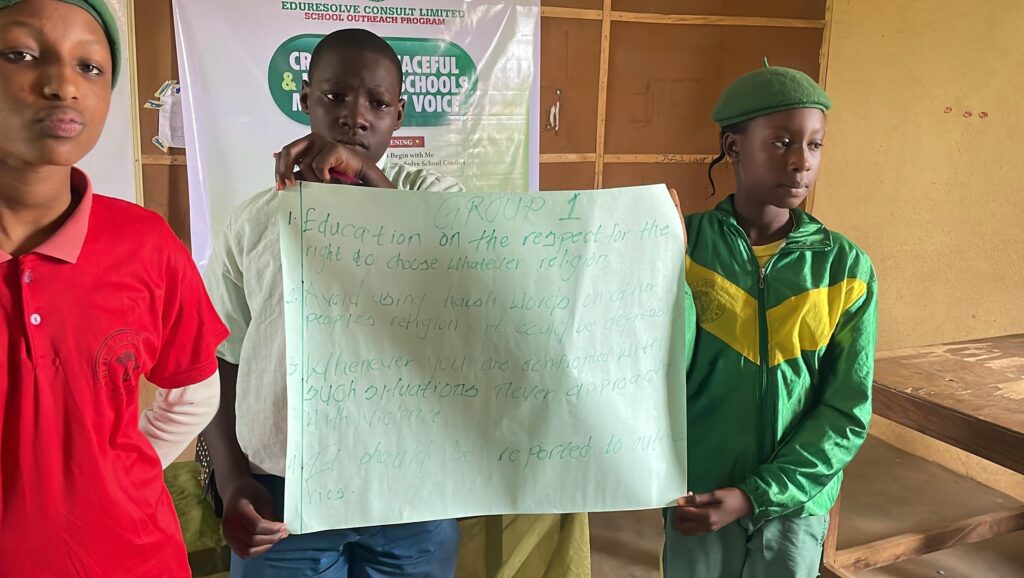 EDURESOLVE CONSULT LIMITED
SCHOOL OUTREACH PROGRAM
CR ACEFUL
& SCHOOLS
M VOICE
ENING
Begin with Me
Solve School Conflict
GROUP 1
1. Education on the respect for the
right to choose whatever religion
2. Avoid using harsh words on other
people's religion, it could be
3. Whenever you are confronted with
such situations never approach
with violence
4. It should be reported to
ries.